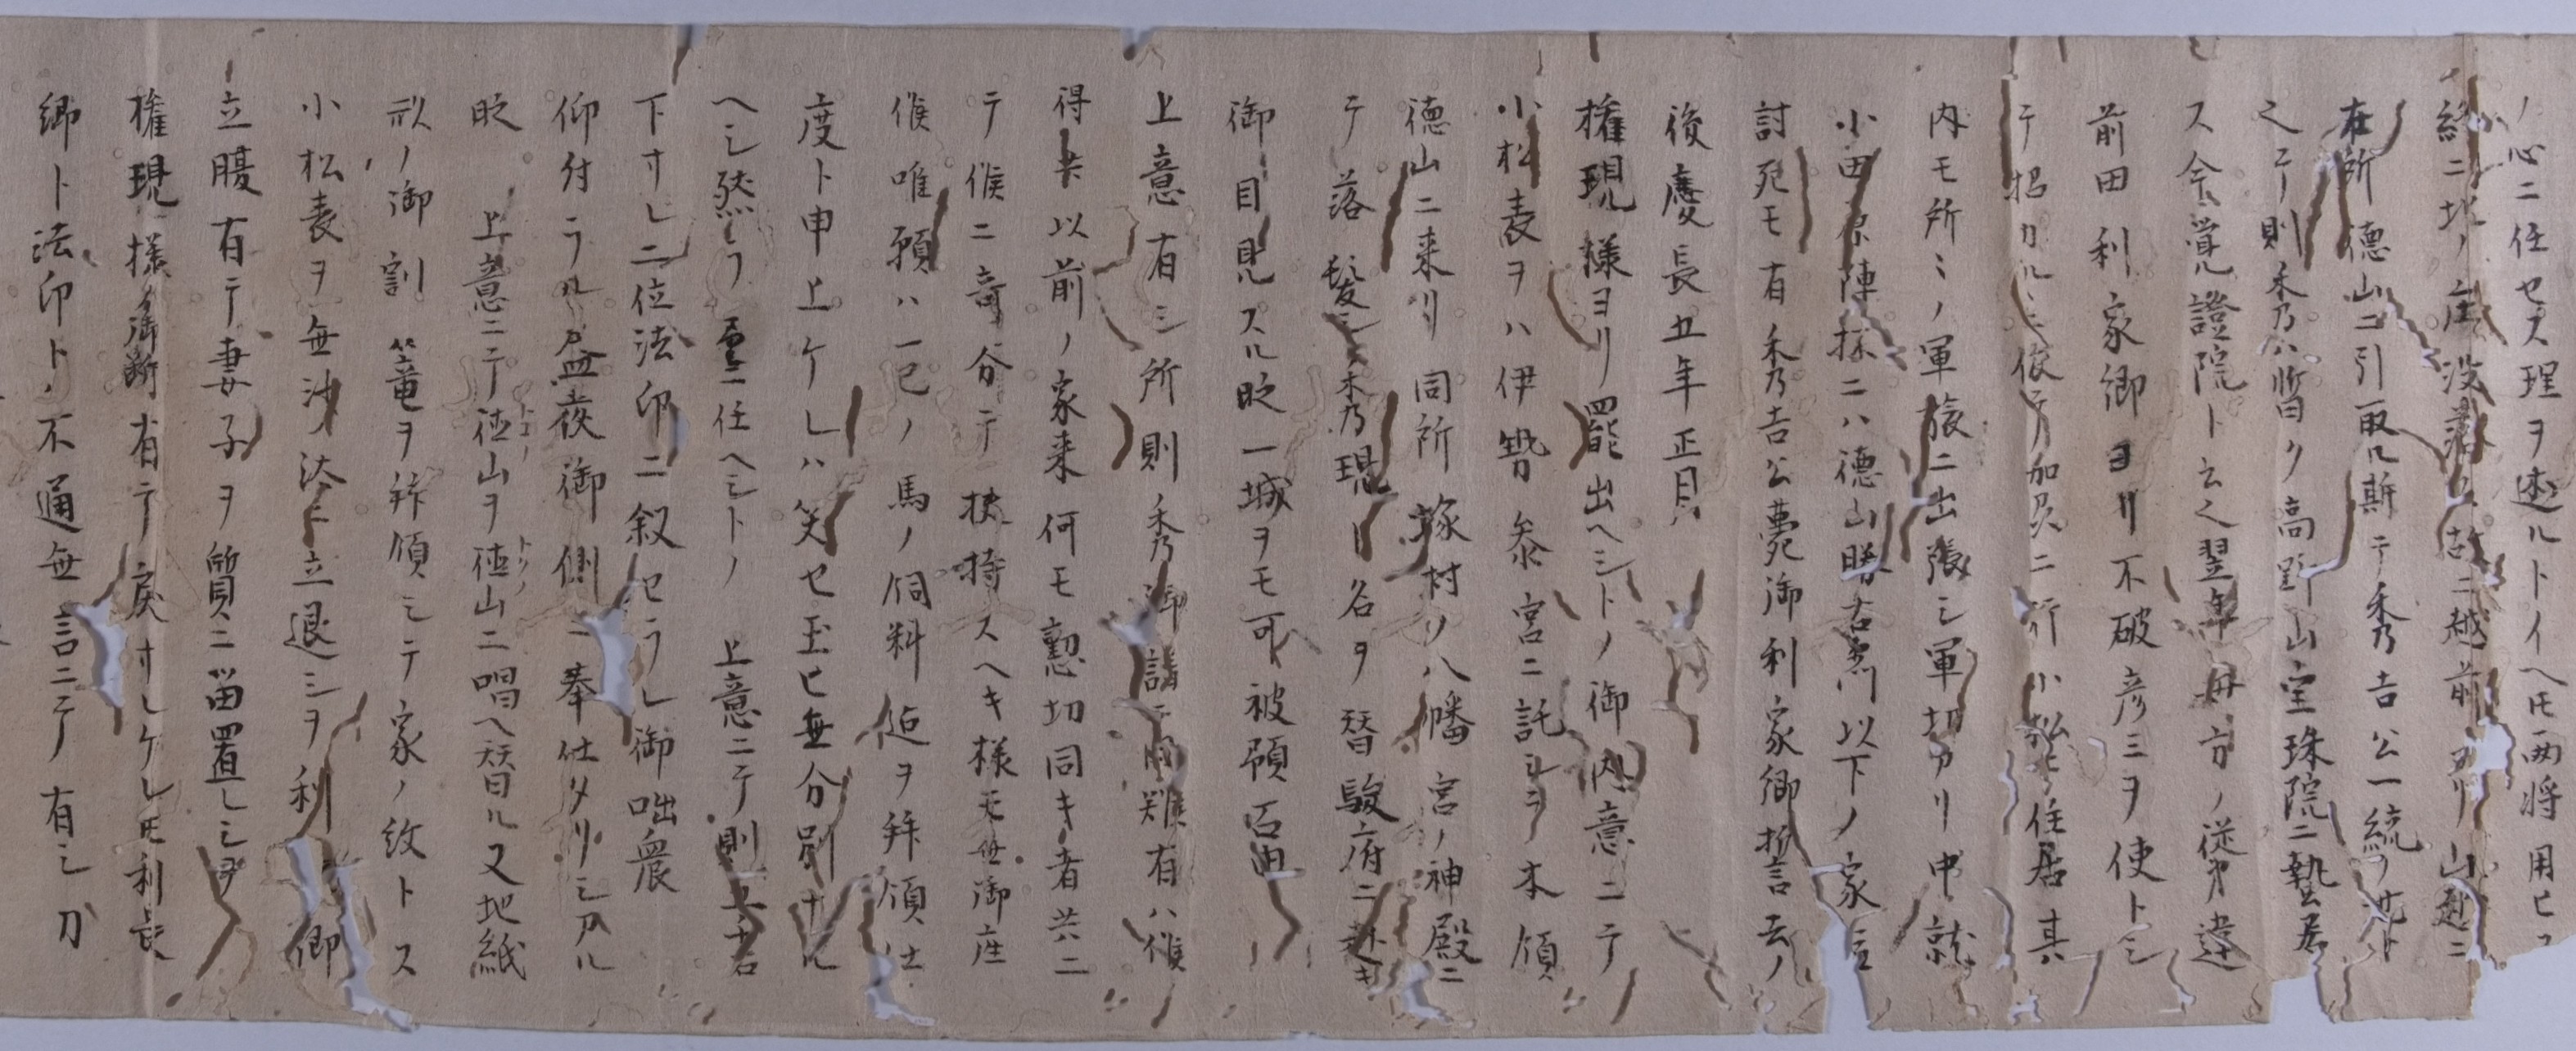 ノ心ニ任セス理ヲ述ルトイヘ𪜈両将用ヒス
終ニ北ノ庄没落ス故ニ越前ヨリ山越ニ
在所徳山ニ引取ル斯テ秀吉公一統ノ世ト
之テ則秀乃ハ暫ク高野山宝珠院ニ蟄居
ス今覚證院ト云之翌年毎方ノ従弟遠
前田利家卿ヨリ不破彦三ヲ使トシ
テ招カルヽニ依テ加州ニ行小松ニ住居其
内モ所ミノ軍旅ニ出張シ軍切アリ中就
小田原陣抔ニハ徳山勝右衛門以下ノ家臣
討死モ有秀吉公薨御利家卿誓言去ノ
後慶長五年正月
権現様ヨリ罷出ヘシトノ御内意ニテ
小松表ヲハ伊勢参宮ニ託シヲノ本領
徳山ニ来リ同所塚村ノ八幡宮ノ神殿ニ
テ落髪シ秀乃現ト名ヲ替駿府ニ赴キ
御目見スル眨一城ヲモ可被預旨
上意有シ所則秀御請ニ同難有ハ候
得共以前ノ家来何モ懇切同キ者共ニ
テ候ニ奇分テ扶持スヘキ様モ無御座
候唯願ハ一己ノ馬ノ飼料迠ヲ拝領仕
度ト申上ケレハ笑セ玉ヒ無分別ナル
ヘシ然ラハ望ニ任ヘシトノ上意ニテ則五千石
下サレ二位法印ニ叙セラレ御咄衆
仰付ラル昼夜御側ニ奉仕タリシ及ル
眨上意ニテ徳山ヲ徳山ニ唱ヘ替ル又地紙
状ノ御割菱ヲ拝領シテ家ノ紋トス
小松表ヲ無沙汰ニ立退シヲ利長卿
立腹有テ妻子ヲ質ニ留置レシヲ
権現様御断有テ戻サレケレ𪜈利長
卿ト法印トハ不通無言ニテ有シ刀